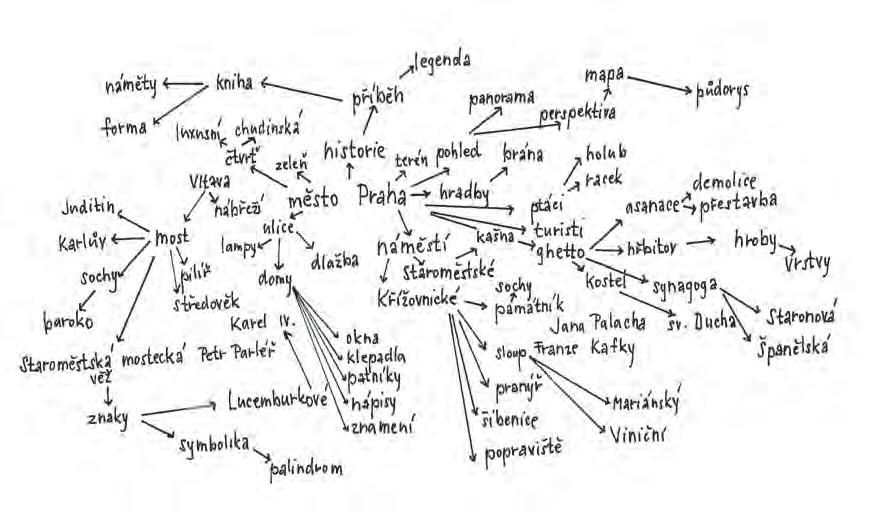 legenda
náměty
kniha
příběh
mapa
půdorys
panorama
perspektiva
forma
luxusní
chudinská
čtvrť
zeleň
historie
terén
pohled
brána
holub
racek
Vltava
nábřeží
město
Praha
hradby
ptáci
asanace
demolice
přestavba
Juditin
Karlův
most
ulice
lampy
dlažba
náměstí
kašna
turisti
ghetto
hřbitov
hroby
vrstvy
sochy
pilíř
středověk
domy
Staroměstské
Křížovnické
sochy
památník
kostel
synagoga
baroko
Karel IV.
Jana Palacha
sv. Ducha
Staronová
Španělská
Staroměstská mostecká
věž
Petr Parléř
okna
klepadla
patníky
nápisy
znamení
sloup
Franze Kafky
pranýř
šibenice
popraviště
Mariánský
Viniční
znaky
Lucemburkové
symbolika
palindrom